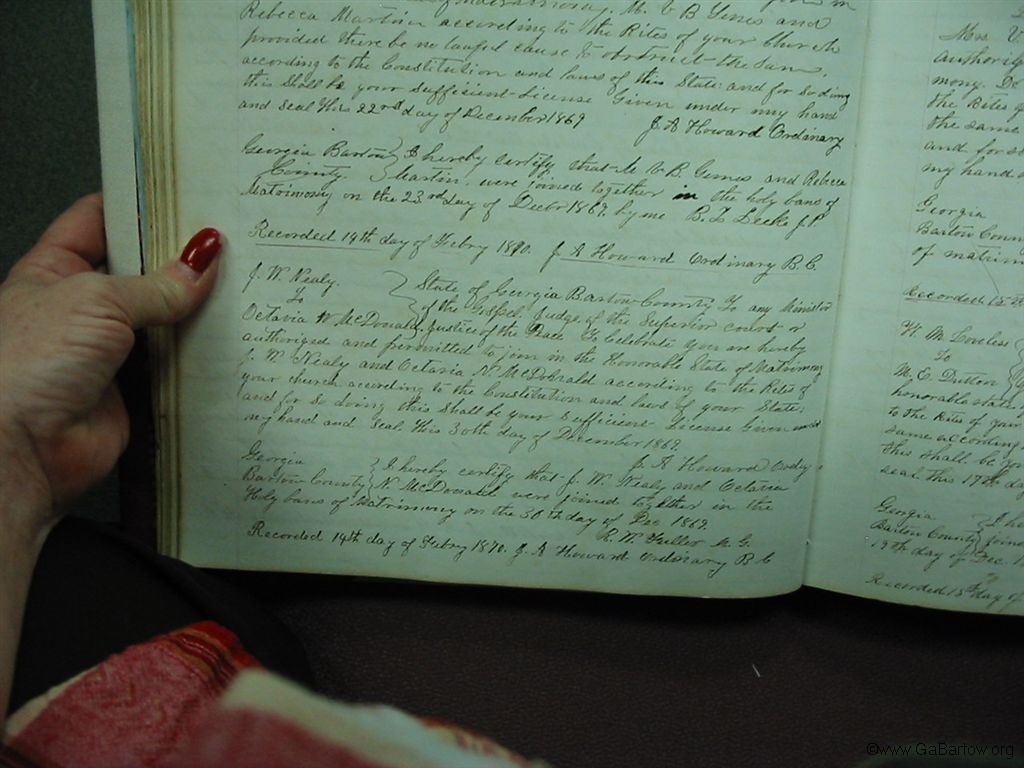 M. V B Gemes and
Rebecca Martin according to the Rites of your Church
provided there be no lawful cause to obstruct the same,
according to the Constitution and laws of this State: and for so doing
this shall be your sufficient License Given under my hand
and seal this 22nd day of December 1869 J. A Howard Ordinary
Georgia Bartow } I hereby certify that M V B. Gemes and Rebecca
County. } Martin were joined together in the holy bans of
Matrimony on the 23rd day of Decbr 1869. by me J.P.
Recorded 14th day of Febry 1870. J. A Howard Ordinary B. C.
J. W. Nealy. } State of Georgia Bartow County To any Minister
To } of the Gospel, Judge of the Superior Court or
Octavia N. McDonald. } Justice of the Peace To Celebrate you are hereby
authorized and permitted to join in the Honorable State of Matrimony
J. W Nealy and Octavia N. McDonald according to the Rites of
your church according to the Constitution and laws of your State;
and for so doing this shall be your sufficient License Given under
my hand and seal this 30th day of December 1869.
J. A Howard Ordy.
Georgia } I hereby certify that J. W. Nealy and Octavia
Bartow County } N. McDonald were joined together in the
Holy bans of Matrimony on the 30th day of Dec 1869.
R. W. Fuller M. G.
Recorded 14th day of Febry 1870. J. A Howard Ordinary B C
Mrs.
authority
mony.
the Rites of
the same
and for so
my hand
Georgia
Bartow Coun
of matrim
Recorded 15
M. Loveless
To
M. E. Dutton
honorable state
to the Rites of your
same according
this shall be yo
seal this 17th day
Georgia } I he
Bartow County } joine
19th day of Dec. 1
Recorded 15th day of
©www.GaBartow.org